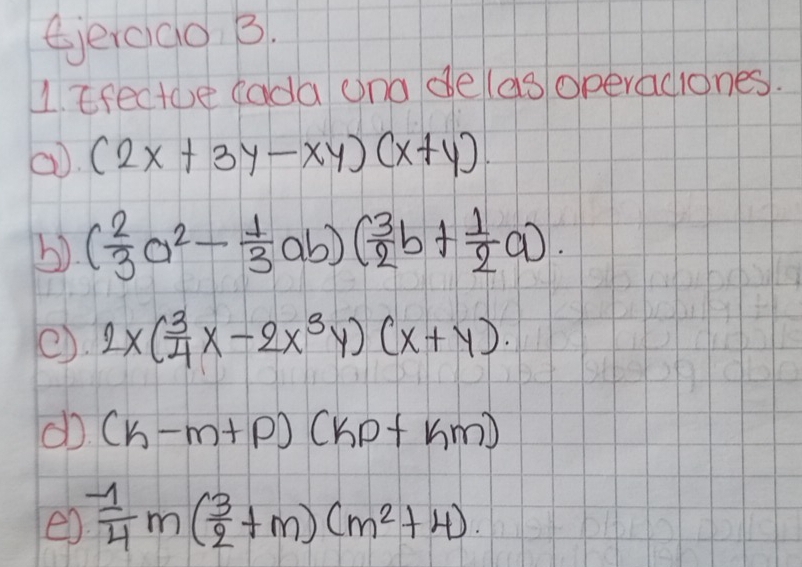 Ejercicio 3.
1. Efectue cada una de las operaciones.
a). (2x + 3y - xy) (x + y).
b). (2/3 a² - 1/3 ab) (3/2 b + 1/2 a).
c). 2x (3/4 x - 2x³y) (x + y).
d). (k - m + p) (kp + km)
e). -1/4 m (3/2 + m) (m² + 4).